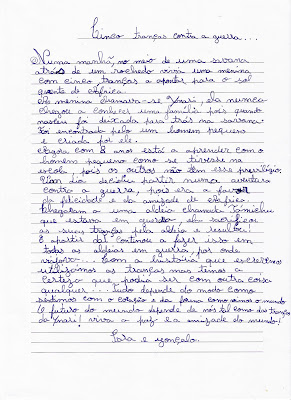 Cinco tranças contra a guerra...
Numa manhã, no meio de uma savana
atrás de um rochedo vivia uma menina
com cinco tranças a apontar para o sol
quente de África.
A menina chamava-se Ynari, ela nunca
chegou a conhecer uma família pois quando
nasceu foi deixada para trás na savana.
Foi encontrada pelo um homem pequeno
e criada por ele.
Agora com 8 anos está a aprender com o
homem pequeno como se tivesse na
escola pois os outros não têm esse privilégio.
Um dia decidiu partir numa aventura
contra a guerra, pois era a favor
da felicidade e da amizade de África.
Chegaram a uma aldeia chamada
que estava em guerra ela sacrificou
as suas tranças pela aldeia e resultou!
E a partir daí continou a fazer isso em
todas as aldeias em guerra, por onde
... Com a história que escrevemos
utilizamos as tranças mas temos a
certeza que podia ser com outra coisa
qualquer... Tudo depende do modo como
sentimos com o coração e da forma como vimos o mundo
O futuro do mundo depende de nós tal como das tranças
da Ynari! viva a paz e a amizade do mundo!
Sara e gonçalo.